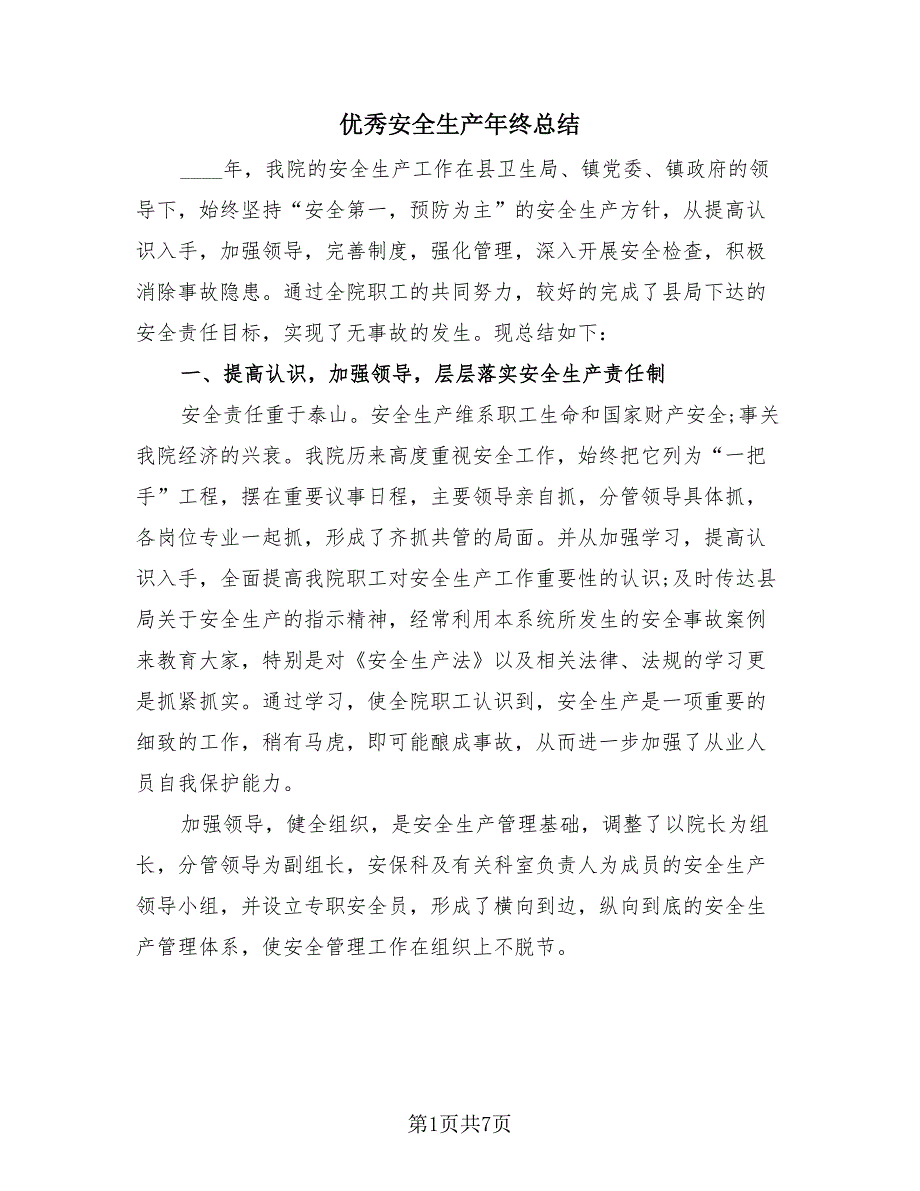 优秀安全生产年终总结
____年，我院的安全生产工作在县卫生局、镇党委、镇政府的领
导下，始终坚持“安全第一，预防为主”的安全生产方针，从提高认
识入手，加强领导，完善制度，强化管理，深入开展安全检查，积极
消除事故隐患。通过全院职工的共同努力，较好的完成了县局下达的
安全责任目标，实现了无事故的发生。现总结如下：
一、提高认识，加强领导，层层落实安全生产责任制
安全责任重于泰山。安全生产维系职工生命和国家财产安全;事关
我院经济的兴衰。我院历来高度重视安全工作，始终把它列为“一把
手”工程，摆在重要议事日程，主要领导亲自抓，分管领导具体抓，
各岗位专业一起抓，形成了齐抓共管的局面。并从加强学习，提高认
识入手，全面提高我院职工对安全生产工作重要性的认识;及时传达县
局关于安全生产的指示精神，经常利用本系统所发生的安全事故案例
来教育大家，特别是对《安全生产法》以及相关法律、法规的学习更
是抓紧抓实。通过学习，使全院职工认识到，安全生产是一项重要的
细致的工作，稍有马虎，即可能酿成事故，从而进一步加强了从业人
员自我保护能力。
加强领导，健全组织，是安全生产管理基础，调整了以院长为组
长，分管领导为副组长，安保科及有关科室负责人为成员的安全生产
领导小组，并设立专职安全员，形成了横向到边，纵向到底的安全生
产管理体系，使安全管理工作在组织上不脱节。
第1页共7页